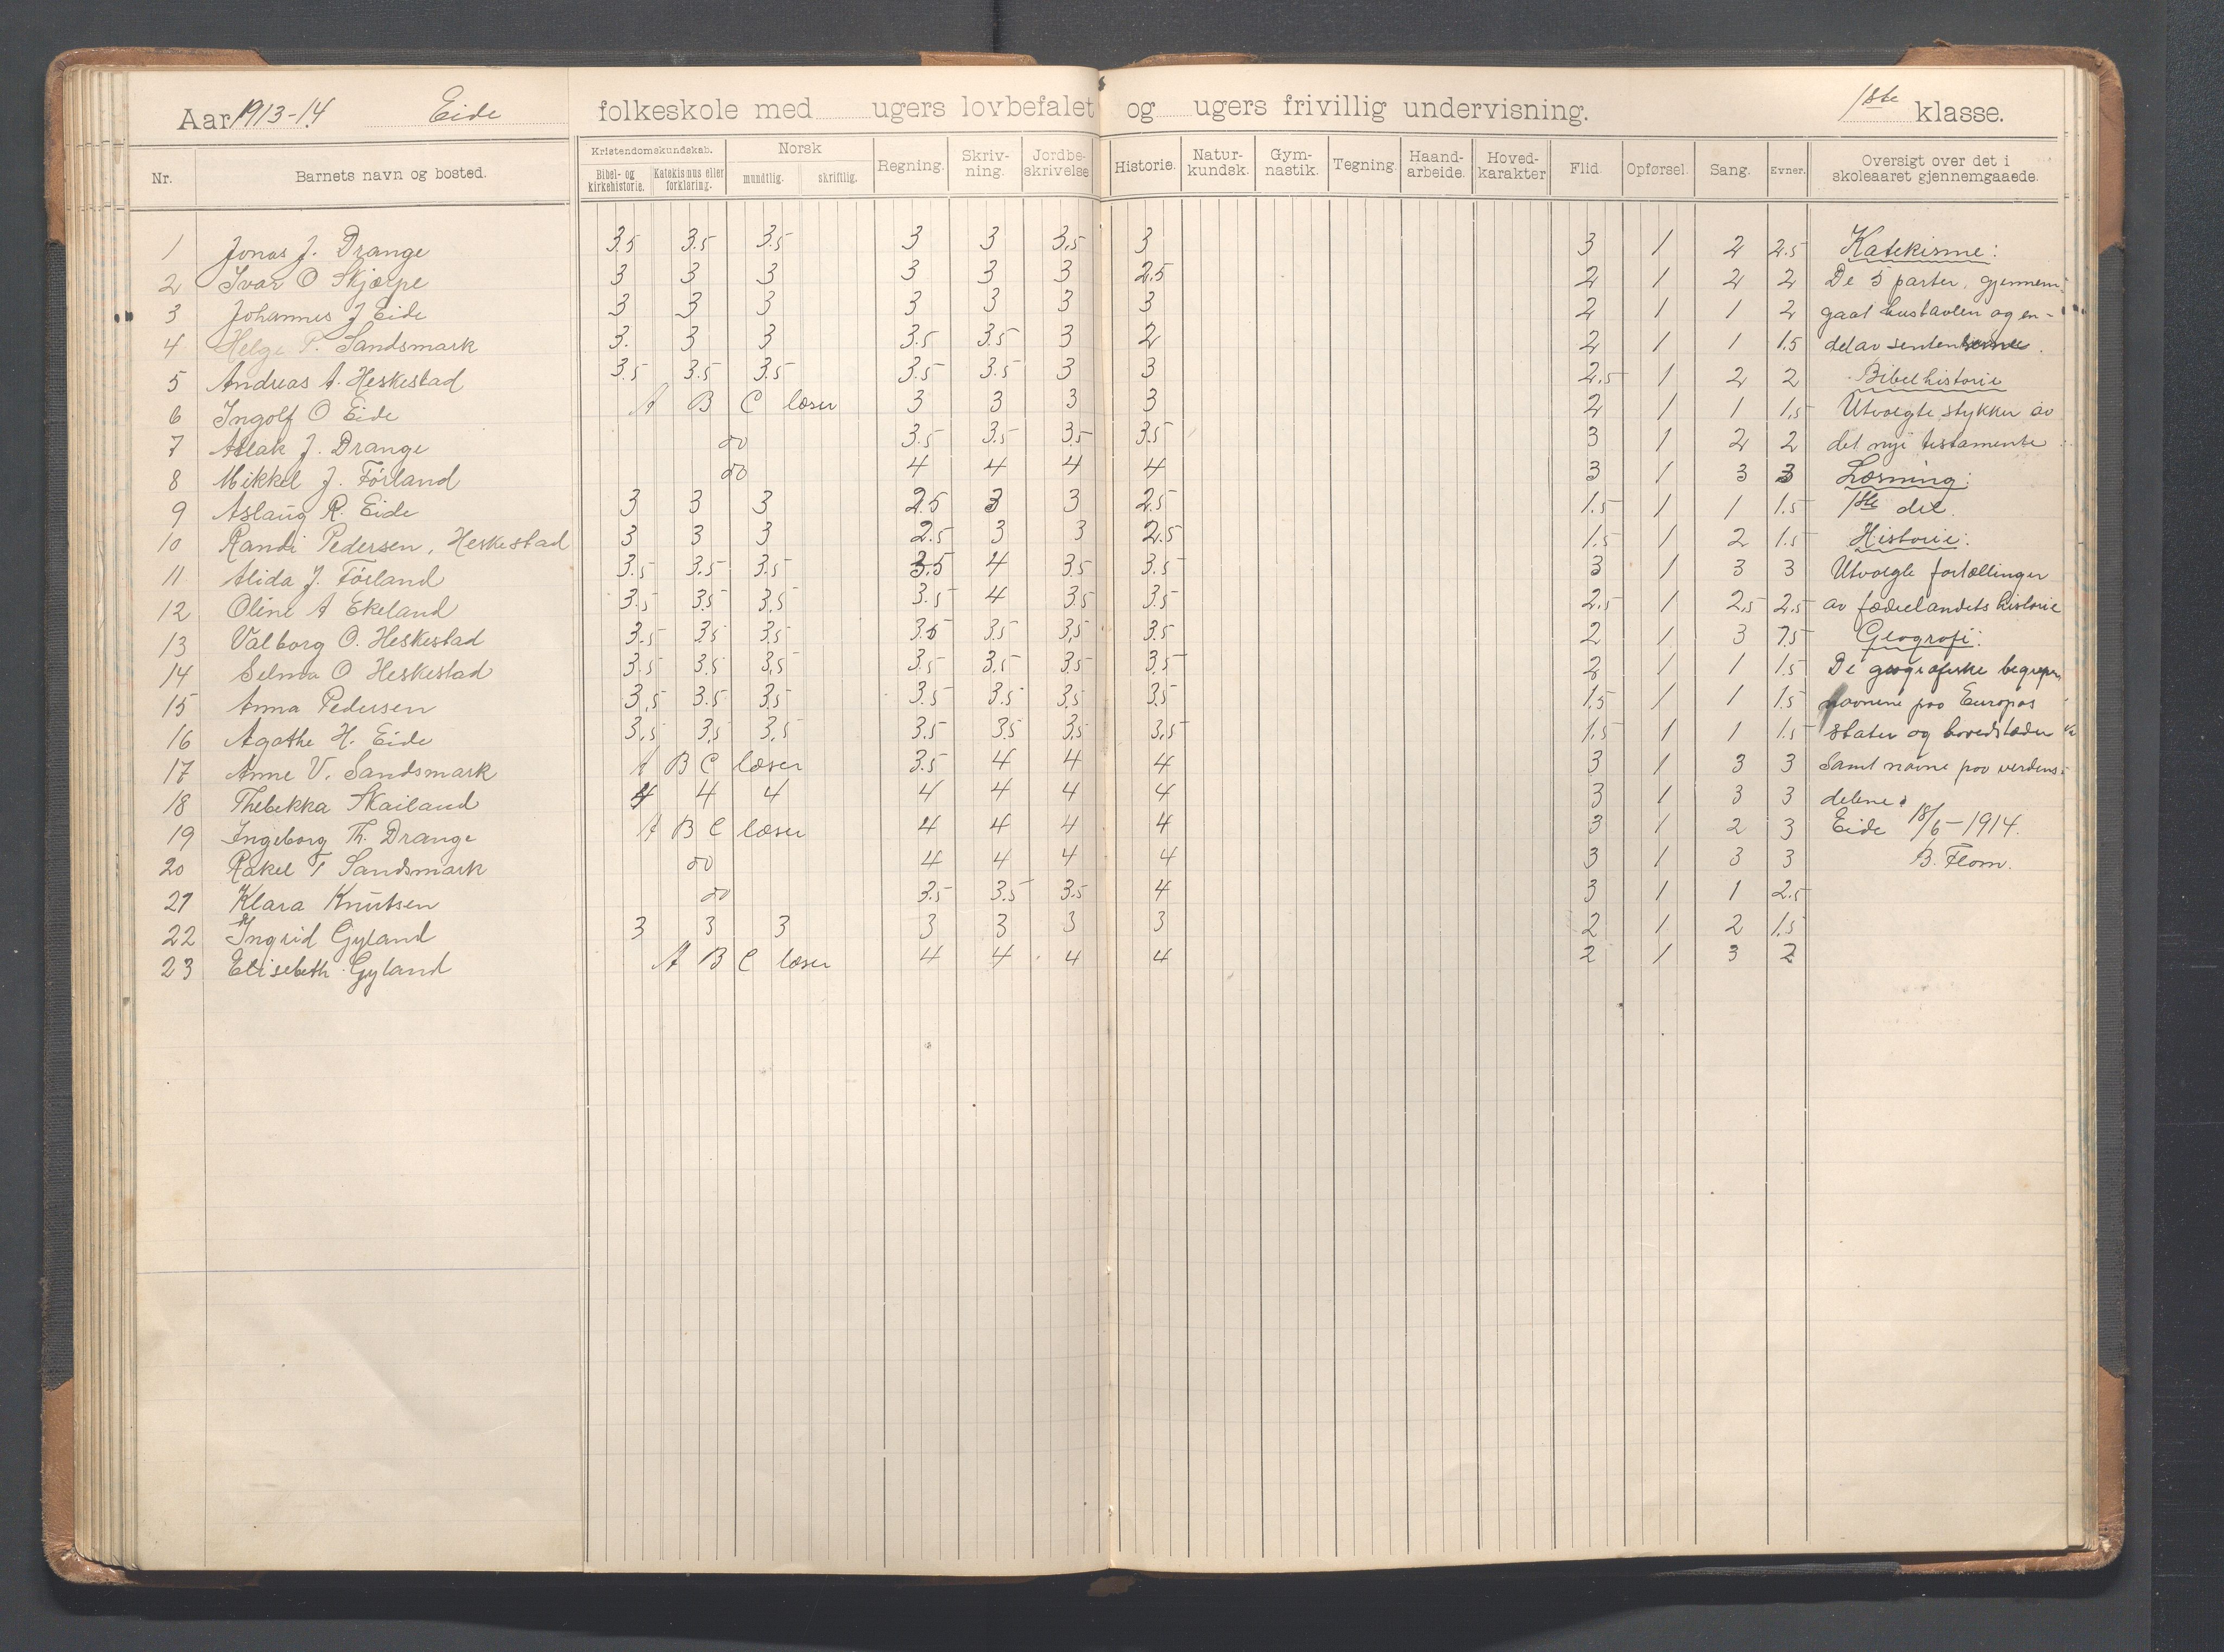 Aar 1913-14 Eide folkeskole med ugers lovbefalet og ugers frivillig undervisning. 1ste klasse.
Nr. Barnets navn og bosted. Kristendomskundskab. Bibel- og kirkehistorie. Katekismus eller forklaring. Norsk mundtlig. skriftlig. Regning. Skriv-ning. Jordbe-skrivelse Historie. Natur-kundsk. Gym-nastik. Tegning. Haand-arbeide. Hoved-karakter Flid. Opførsel. Sang. Evner. Oversigt over det i skoleaaret gjennemgaaede.
1 Jonas J. Drange 3.5 3.5 3.5 3 3 3,5 3 3 1 2 2.5 Katekisme:
2 Ivar O Skjærpe 3 3 3 3 3 3 2,5 2 1 2 2 De 5 parter, gjennem-
3 Johannes J Eide 3 3 3 3 3 3 3 2 1 1 2 gaat hustavlen og en-
4 Helge P. Sandsmark 3. 3 3 3.5 3.5 3 2 2 1 1 1.5 del av
5 Andreas A. Heskestad 3.5 3.5 3.5 3.5 3.5 3 3 2,5 1 2 2 Bibelhistorie
6 Ingolf O Eide A B C læser 3 3 3 3 2 1 1 1,5 Utvalgte stykker av
7 Aslak J. Drange do 3.5 3.5 3.5 3.5 3 1 2 2 det nye testamente
8 Mikkel J. Förland do 4 4 4 4 3 1 3 3 Læsning:
9 Aslaug R. Eide 3 3 3 2.5 3 3 2.5 1.5 1 1 1.5 1ste del.
10 Randi Pedersen, Heskestad 3 3 3 2.5 3 3 2.5 1.5 1 2 1.5 Historie:
11 Alida J. Förland 3.5 3.5 3.5 3.5 4 3.5 3.5 3 1 3 3 Utvalgte fortællinger
12 Oline A Ekeland 3.5 3.5 3,5 3.5 4 3.5 3.5 2,5 1 2,5 2.5 av fædrelandets historie
13 Valborg O. Heskestad 3.5 3.5 3.5 3.5 3.5 3,5 3.5 2 1 3 Geografi:
14 Selma O Heskestad 3.5 3.5 3,5 3.5 3,5 3.5 3,5 2 1 1 1.5 De geografiske begreper
15 Anna Pedersen 3,5 3.5 3.5 3.5 3.5 3.5 3.5 1,5 1 1 1.5 navnene paa Europas
16 Agathe H. Eide 3,5 3,5 3,5 3.5 3.5 3,5 3,5 1,5 1 1 1.5 stater og hovedstæder
17 Anne V. Sandsmark A B C læser 3.5 4 4 4 3 1 3 3 Samt navne paa verdens-
18 Thebekka Skailand 4 4 4 4 4 4 4 3 1 3 3 delene.
19 Ingeborg Th. Drange A B C læser 4 4 4 4 3 1 2 3 Eide 18/6-1914.
20 Rakel T Sandsmark do 4 4 4 4 3 1 3 3 B. Flom.
21 Klara Knutsen do 3.5 3.5 3.5 4 3 1 1 2.5
22 Ingrid Gyland 3 3 3 3 3 3 3 2 1 2 1,5
23 Elisebeth Gyland A B C læser 4 4 4 4 2 1 3 2